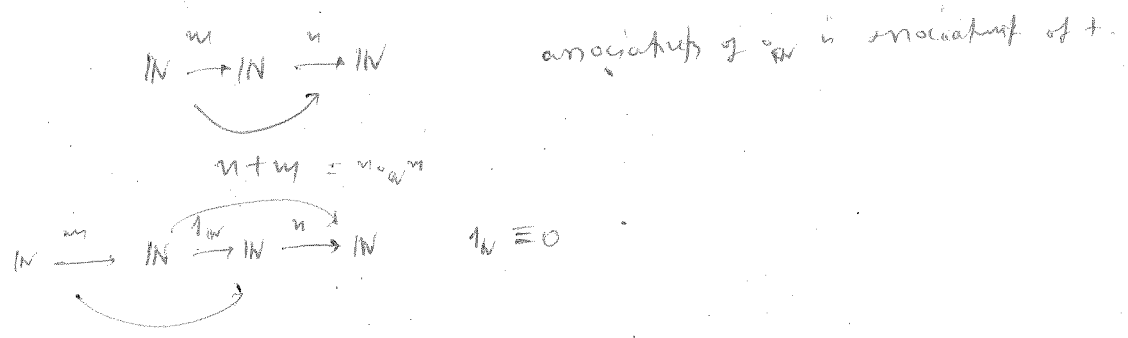 m n
ℕ → ℕ → ℕ associativity of ∘ℕ is associativity of +.
n+m = n∘ℕ m
m 1ℕ n
ℕ → ℕ → ℕ → ℕ 1ℕ ≡ 0